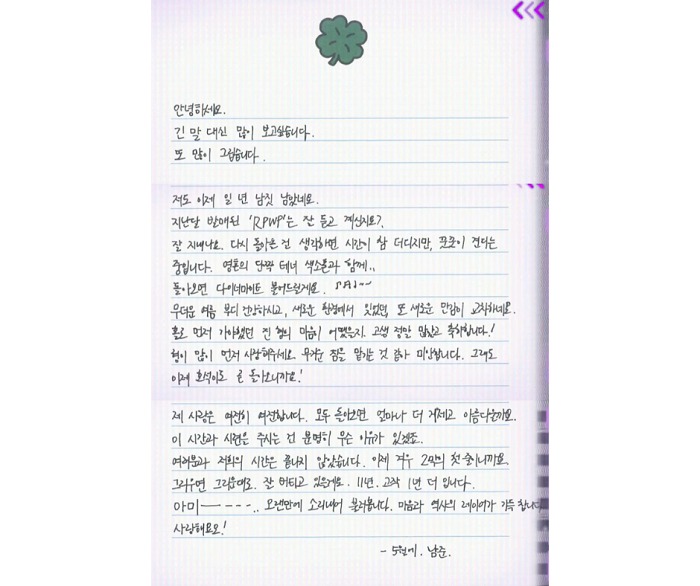 안녕하세요.
긴 말 대신 많이 보고싶습니다.
또 많이 그립습니다.
저도 이제 일 년 남짓 남았네요.
지난달 발매된 'RPWP'는 잘 듣고 계신지요?
잘 지내나요. 다시 돌아온 건 생각하면 시간이 참 더디지만, 꿋꿋이 견디는
중입니다. 영혼의 단짝 테너 색소폰과 함께..
돌아오면 다이너마이트 불어드릴게요.
무더운 여름 부디 건강하시고, 새로운 환경에서 잊었던, 또 새로운 만감이 교차하네요.
홀로 먼저 가야했던 진 형의 마음이 어땠을지. 고생 정말 많았고 축하합니다!
형이 많이 먼저 사랑해주세요. 무거운 짐을 맡기는 것 같아 미안합니다. 그래도
이제 호석이도 곧 돌아오니까요!
제 사랑은 여전히 여전합니다. 모두 돌아오면 얼마나 더 거세고 아름다울까요.
이 시간과 시련을 주시는 건 분명히 무슨 이유가 있겠죠.
여러분과 저희의 시간은 끝나지 않았습니다. 이제 겨우 2막의 첫 줄이니까요.
그리우면 그리운대로. 잘 버티고 있을게요. 11년. 고작 1년 더 입니다.
아미――---.. 오랜만에 소리내어 불러봅니다. 마음과 역사의 레이어가 가득 합니다
사랑해요오!
- 5월에. 남준.